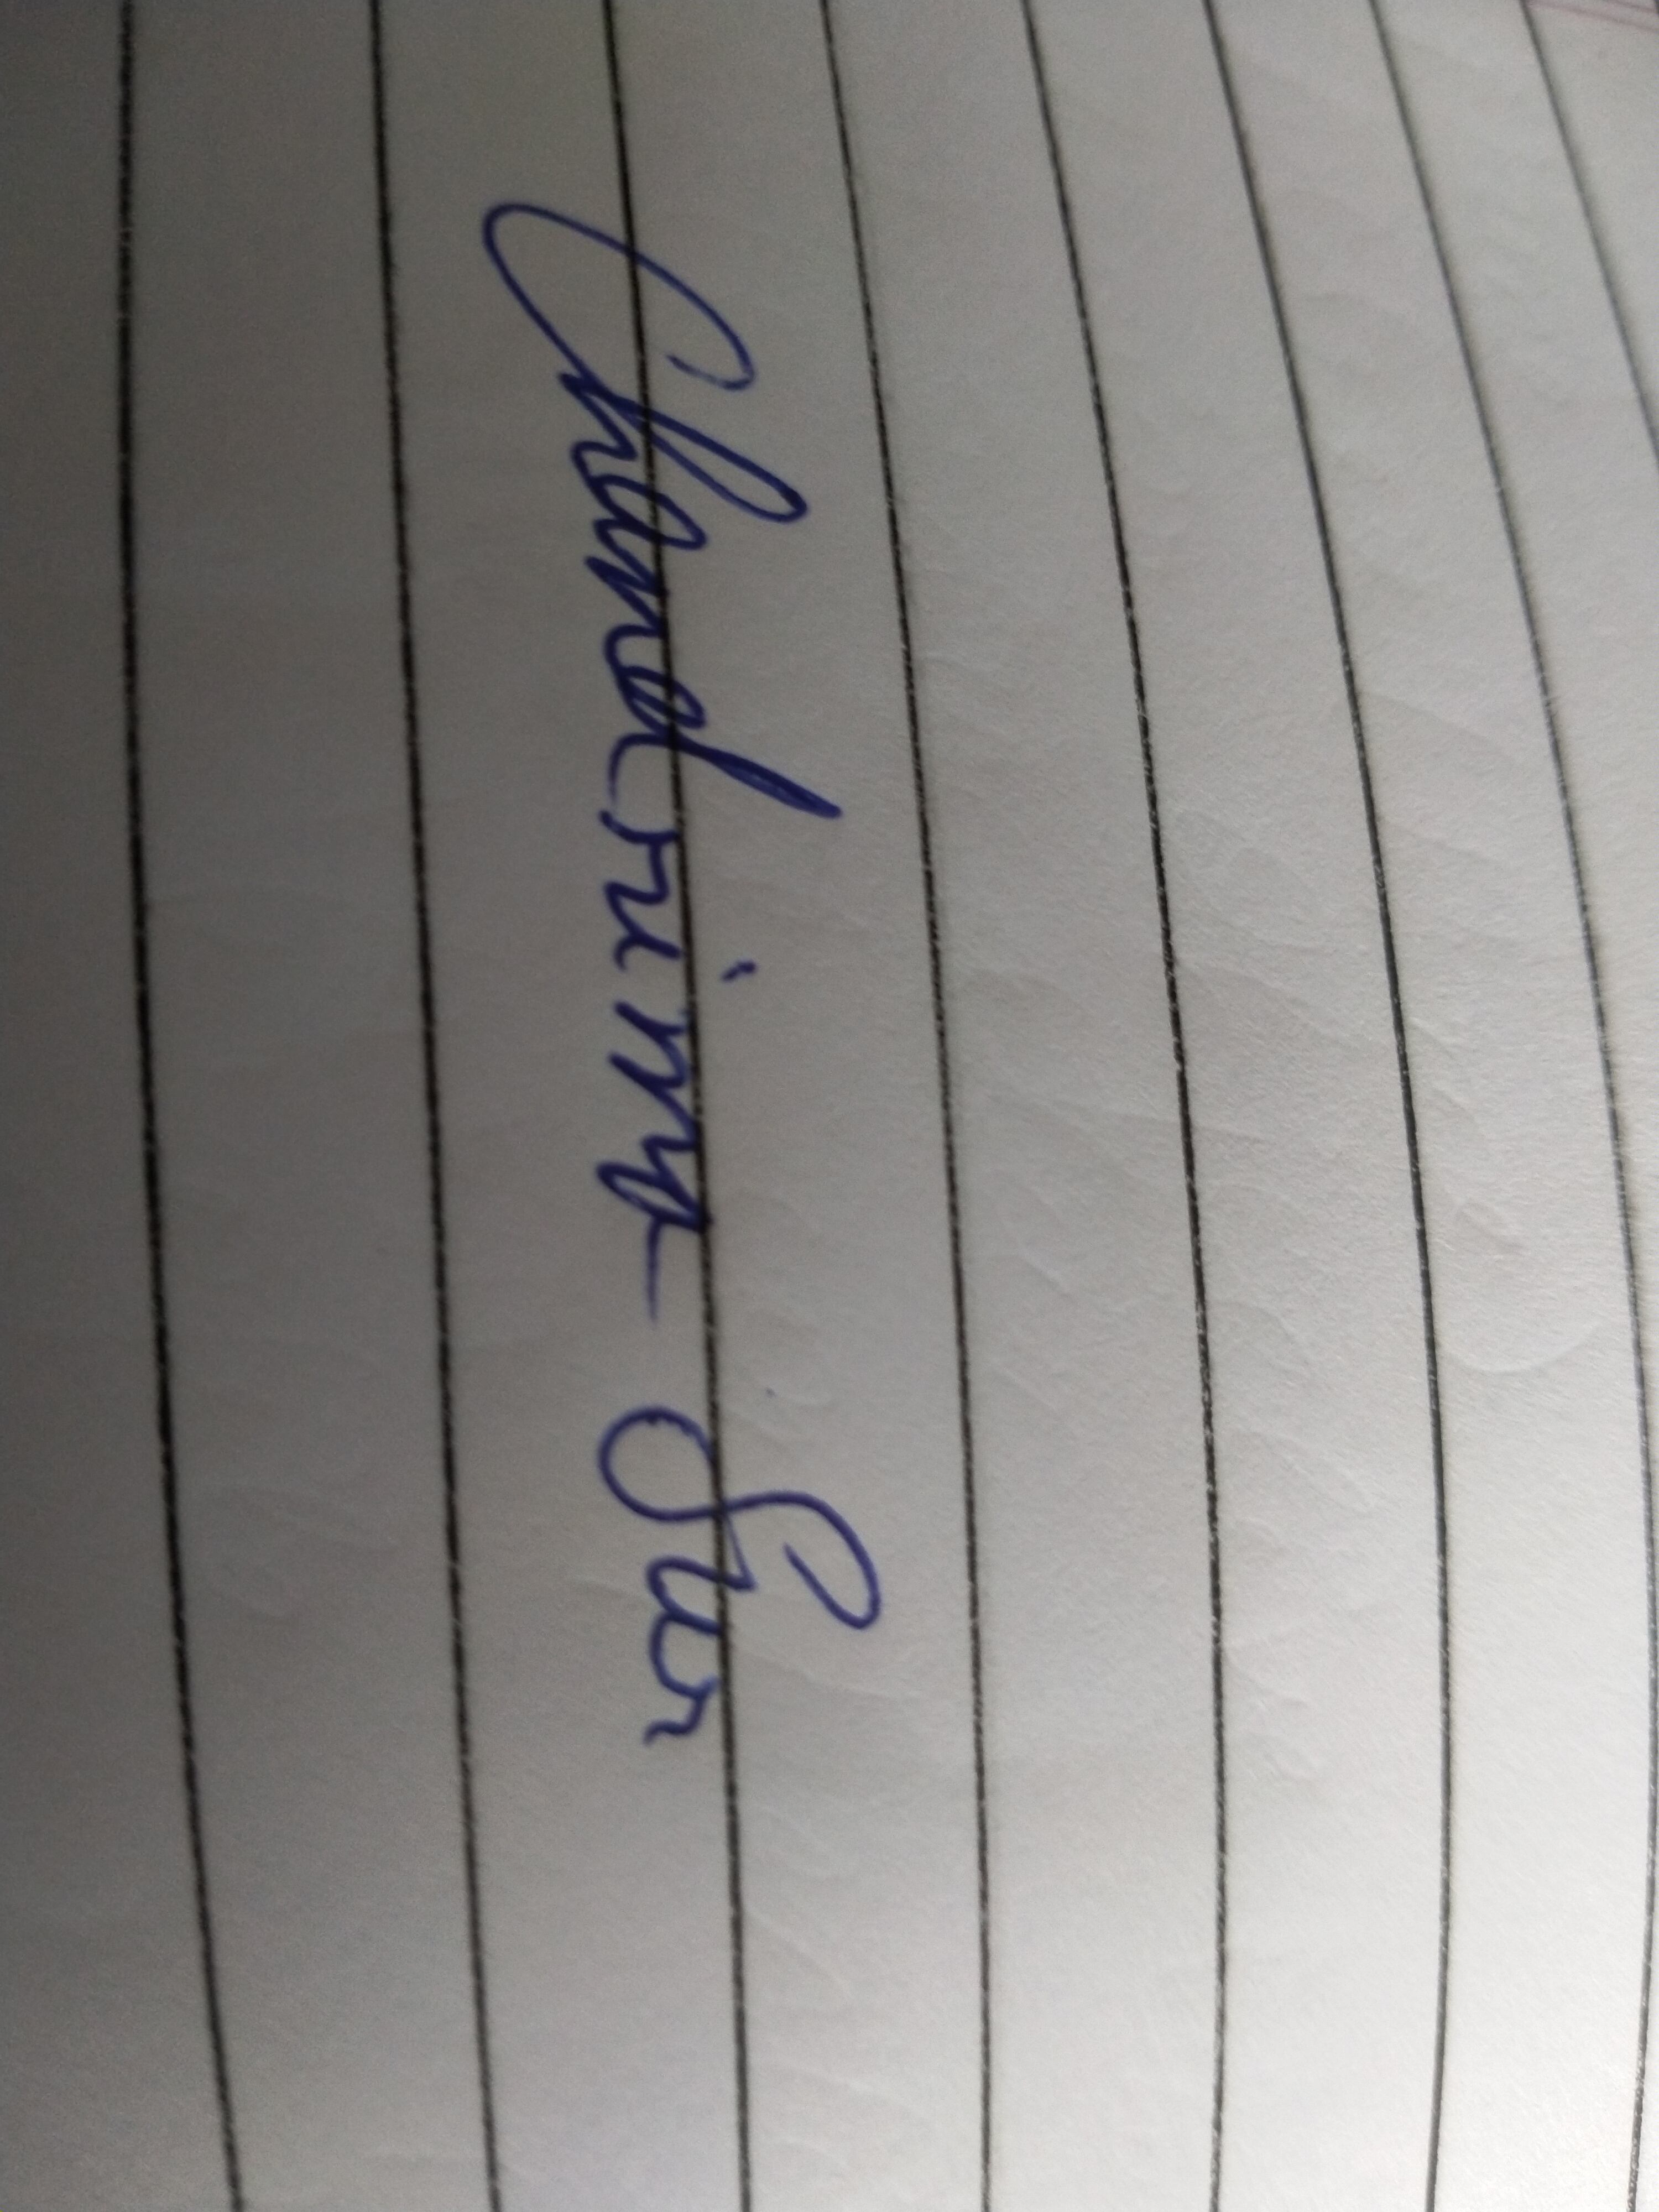 Chandrima Sur